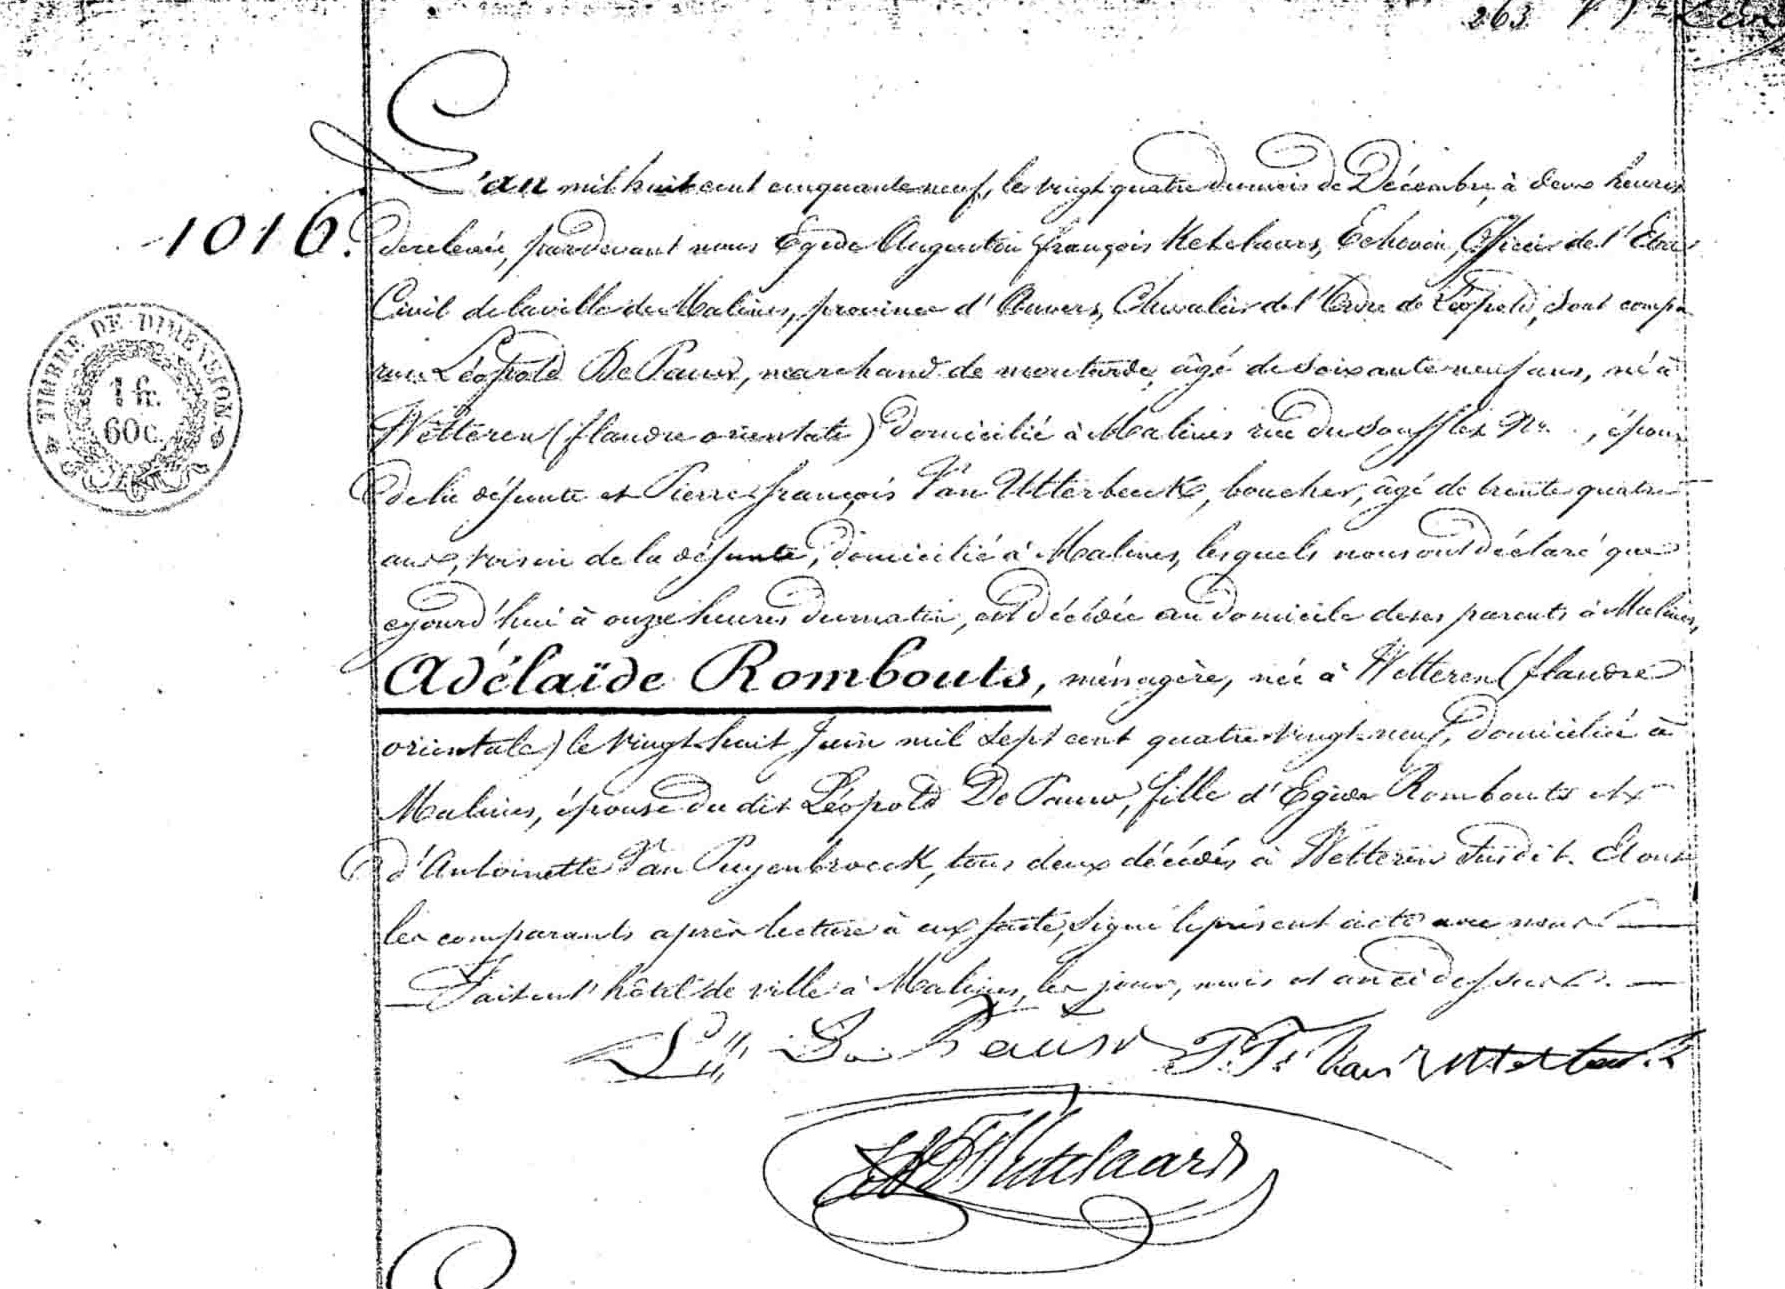 263
1016.
TIMBRE DE DIMENSION
1 fr.
60 c.
L'an mil huit cent cinquante neuf, le vingt quatre du mois de Décembre, à deux heures
de relevée, pardevant nous Egide Augustin françois Ketelaars, Echevin, Officier de l'Etat
Civil de la ville de Malines, province d'Anvers, Chevalier de l'Ordre de Léopold, sont compa
rus Léopold De Pauw, marchand de moutarde, âgé de soixante neuf ans, né à
Wetteren (flandre orientale) domicilié à Malines rue du Soufflet Nr. , époux
de la défunte et Pierre françois Van Utterbeeck, boucher, âgé de trente quatre
ans, voisin de la défunte, domicilié à Malines, lesquels nous ont déclaré que
cejourd'hui à onze heures du matin, est décédée au domicile de ses parents à Malines,
Adélaïde Rombouts, ménagère, née à Wetteren (flandre
orientale) le vingt huit Juin mil sept cent quatre vingt neuf, domiciliée à
Malines, épouse du dit Léopold De Pauw, fille d'Egide Rombouts et
d'Antoinette Van Puyenbroeck, tous deux décédés à Wetteren susdit. Et ont
les comparants après lecture à eux faite, signé le présent acte avec nous.
Fait en l'hôtel de ville à Malines, les jour, mois et an ci dessus.
De Pauw P. F. Van Utterbeeck
Ketelaars